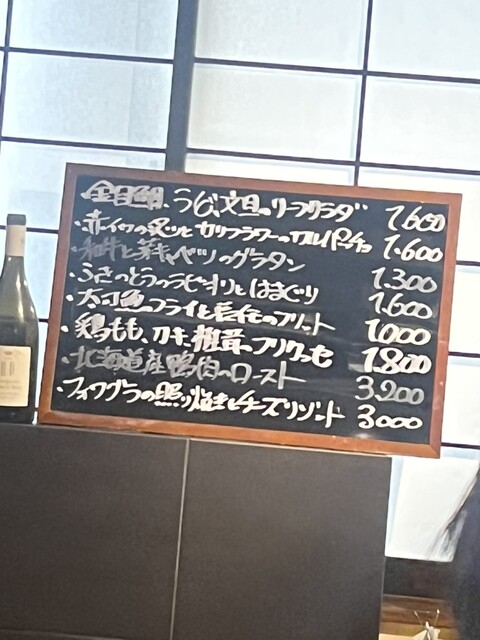 金目鯛、うど、文旦のリーフサラダ 1.600
・赤イカの炙りとカリフラワーのカルパッチョ 1.600
・和牛と芽キャベツのグラタン 1.300
・ふきのとうのラビオリとはまぐり 1.600
・太刀魚のフライと長芋のフリット 1.000
・鶏もも、カキ、椎茸のフリカッセ 1.800
・北海道産鴨肉のロースト 3.200
・フォワグラの照り焼きとチーズリゾット 3000